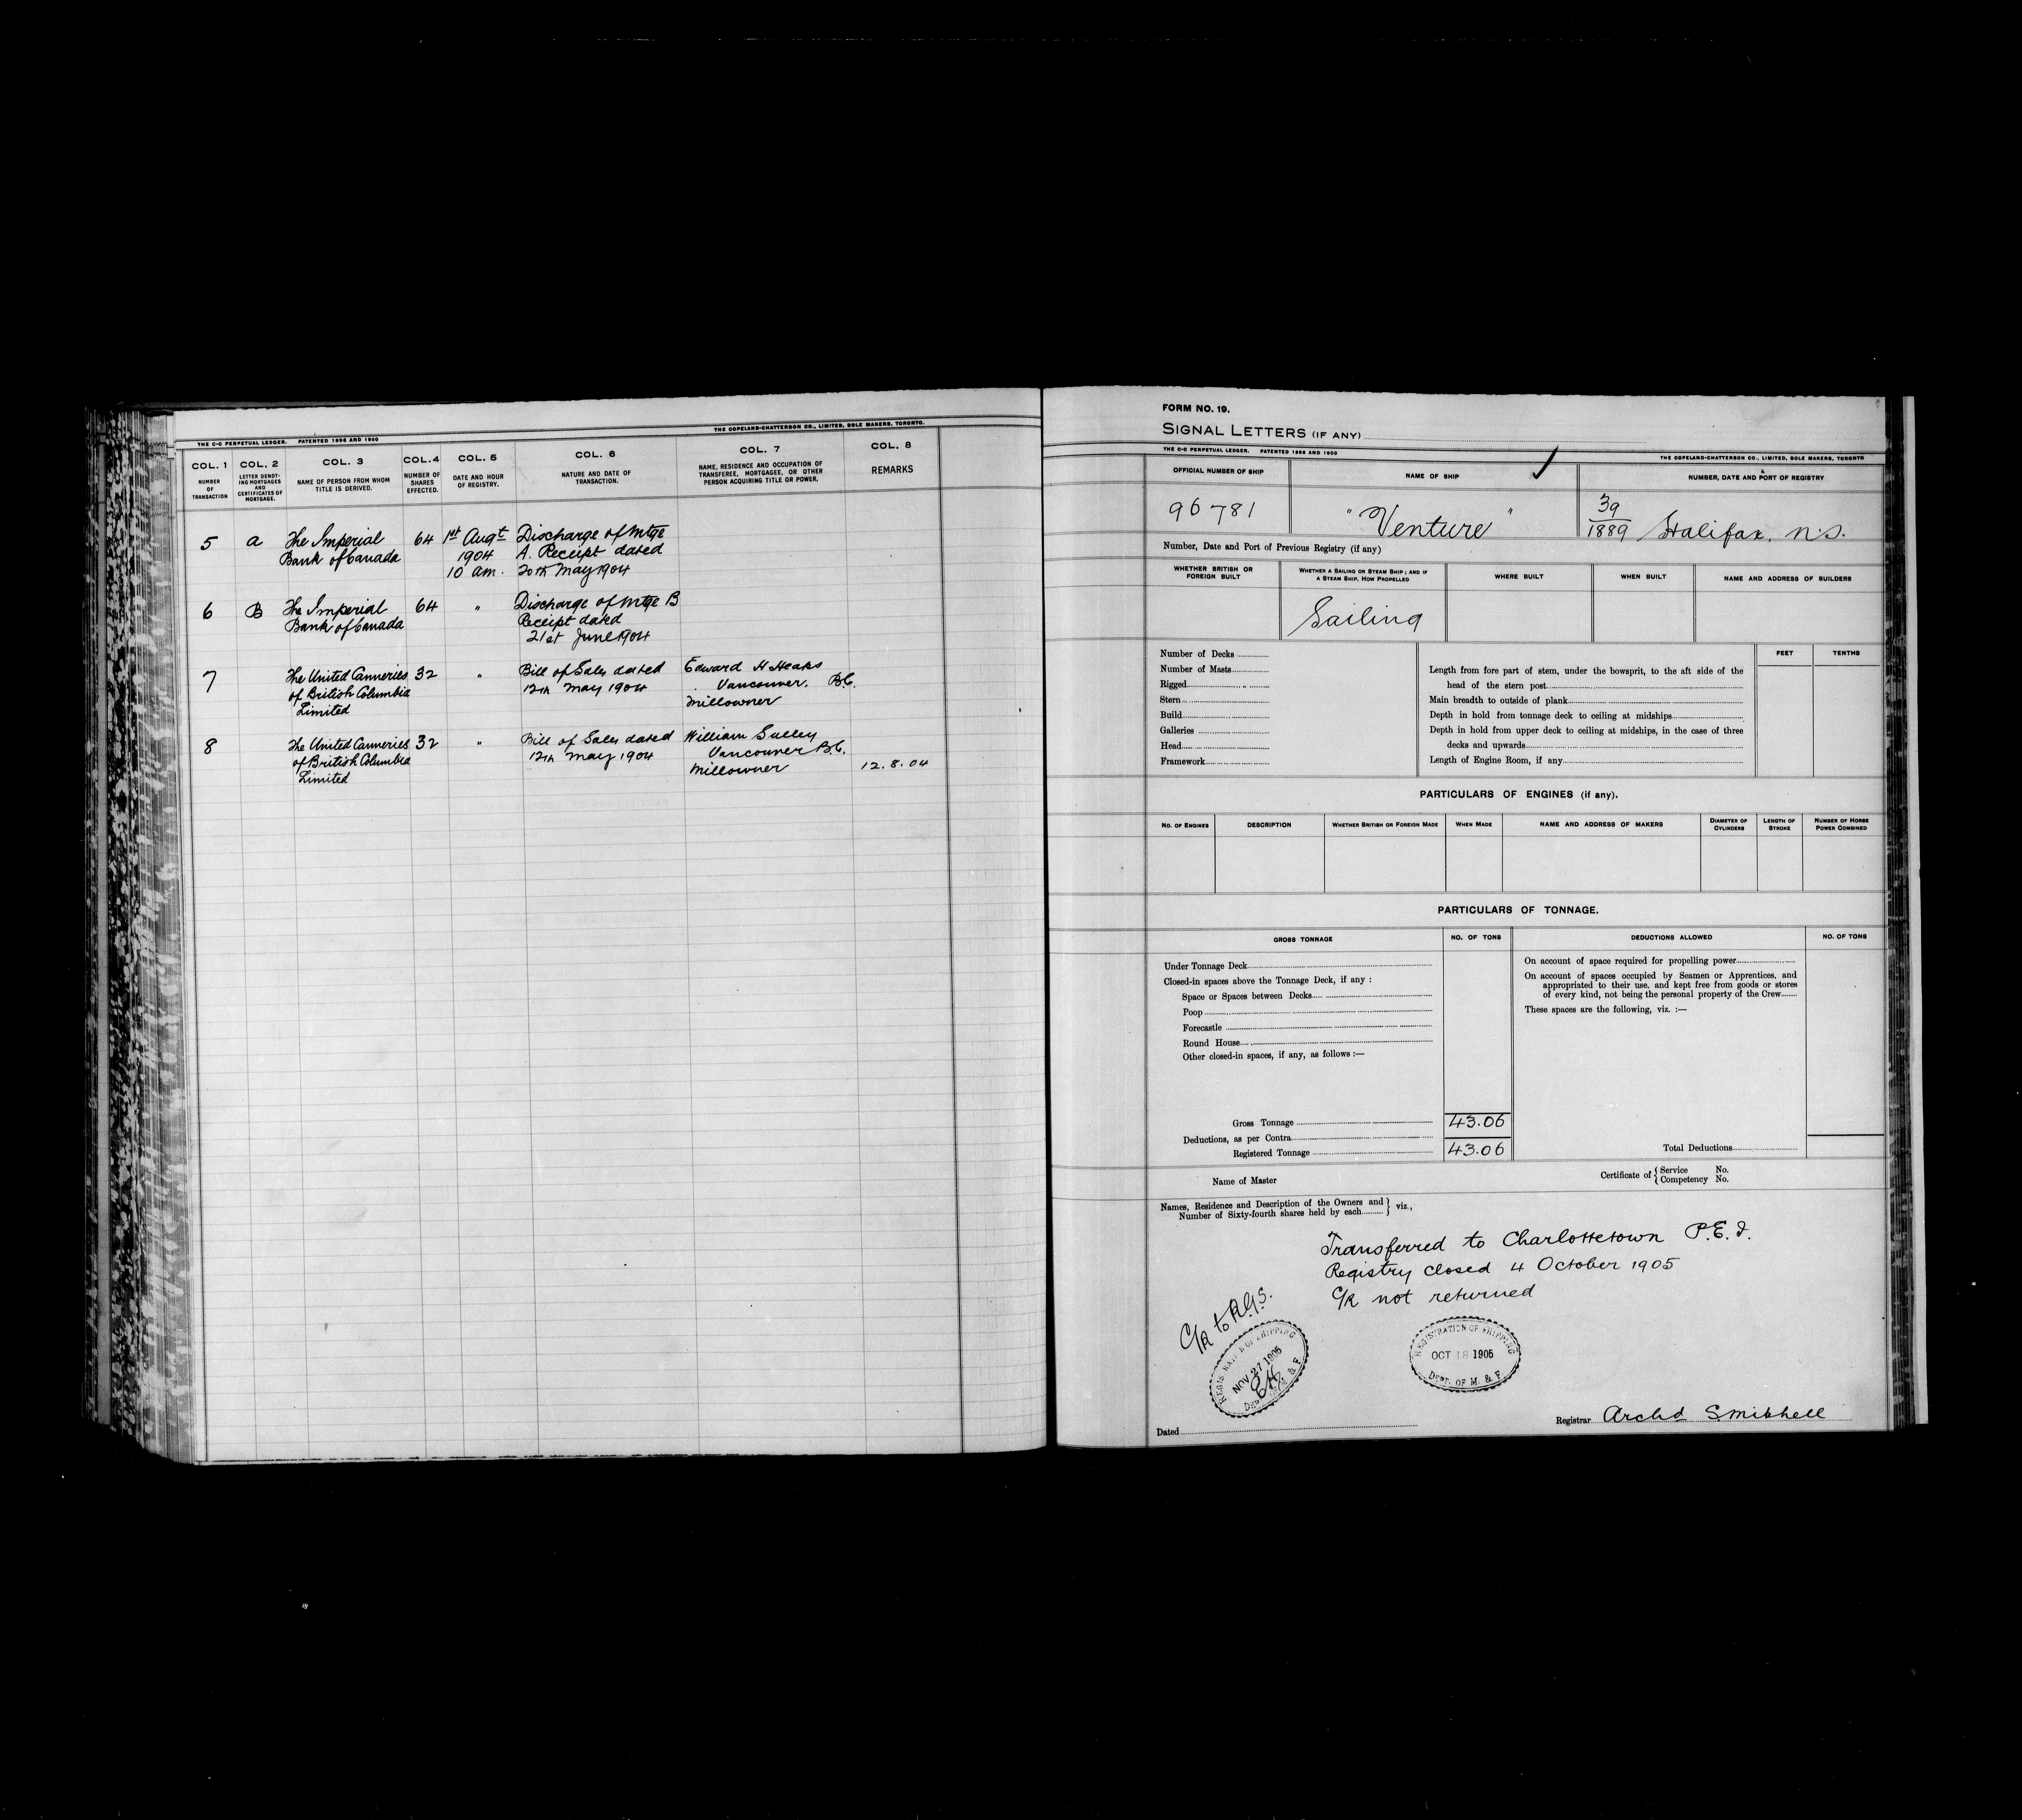 THE C-C PERPETUAL LEDGER. PATENTED 1896 AND 1900
THE COPELAND-CHATTERSON CO., LIMITED, SOLE MAKERS, TORONTO.
COL. 1 COL. 2 COL. 3 COL. 4 COL. 5 COL. 6 COL. 7 COL. 8
NUMBER OF TRANSACTION
LETTER DENOTING MORTGAGES AND CERTIFICATES OF MORTGAGE.
NAME OF PERSON FROM WHOM TITLE IS DERIVED.
NUMBER OF SHARES EFFECTED.
DATE AND HOUR OF REGISTRY.
NATURE AND DATE OF TRANSACTION.
NAME, RESIDENCE AND OCCUPATION OF TRANSFEREE, MORTGAGEE, OR OTHER PERSON ACQUIRING TITLE OR POWER.
REMARKS
5 a The Imperial 64 1st Augt Discharge of Mtge
Bank of Canada 1904 A. Receipt dated
10 am. 20th May 1904
6 B The Imperial 64 " Discharge of Mtge B
Bank of Canada Receipt dated
21st June 1904
7 The United Canneries 32 " Bill of Sale dated Edward H Heaps
of British Columbia 12th May 1904 Vancouver. B.C.
Limited Millowner
8 The United Canneries 32 " Bill of Sale dated William Sulley
of British Columbia 12th May 1904 Vancouver B.C.
Limited Millowner 12.8.04
FORM NO. 19.
SIGNAL LETTERS (IF ANY)
THE C-C PERPETUAL LEDGER. PATENTED 1896 AND 1900
THE COPELAND-CHATTERSON CO., LIMITED, SOLE MAKERS, TORONTO
OFFICIAL NUMBER OF SHIP NAME OF SHIP NUMBER, DATE AND PORT OF REGISTRY
96781 "Venture" 39/1889 Halifax, N.S.
Number, Date and Port of Previous Registry (if any)
WHETHER BRITISH OR FOREIGN BUILT
WHETHER A SAILING OR STEAM SHIP; AND IF A STEAM SHIP, HOW PROPELLED
WHERE BUILT
WHEN BUILT
NAME AND ADDRESS OF BUILDERS
Sailing
Number of Decks
Number of Masts
Rigged
Stern
Build
Galleries
Head
Framework
FEET TENTHS
Length from fore part of stem, under the bowsprit, to the aft side of the
head of the stern post
Main breadth to outside of plank
Depth in hold from tonnage deck to ceiling at midships
Depth in hold from upper deck to ceiling at midships, in the case of three
decks and upwards
Length of Engine Room, if any
PARTICULARS OF ENGINES (if any).
NO. OF ENGINES
DESCRIPTION
WHETHER BRITISH OR FOREIGN MADE
WHEN MADE
NAME AND ADDRESS OF MAKERS
DIAMETER OF CYLINDERS
LENGTH OF STROKE
NUMBER OF HORSE POWER COMBINED
PARTICULARS OF TONNAGE.
GROSS TONNAGE NO. OF TONS DEDUCTIONS ALLOWED NO. OF TONS
Under Tonnage Deck
Closed-in spaces above the Tonnage Deck, if any :
Space or Spaces between Decks
Poop
Forecastle
Round House
Other closed-in spaces, if any, as follows :—
On account of space required for propelling power
On account of spaces occupied by Seamen or Apprentices, and
appropriated to their use, and kept free from goods or stores
of every kind, not being the personal property of the Crew
These spaces are the following, viz. :—
Gross Tonnage 43.06
Deductions, as per Contra
Registered Tonnage 43.06
Total Deductions
Name of Master
Certificate of { Service No.
Competency No.
Names, Residence and Description of the Owners and
Number of Sixty-fourth shares held by each } viz.,
Transferred to Charlottetown P.E.I.
Registry closed 4 October 1905
C/R not returned
C/R to R.G.S.
REGISTRATION OF SHIPPING
NOV 27 1905
DEPT. OF M. & F.
REGISTRATION OF SHIPPING
OCT 18 1905
DEPT. OF M. & F.
Dated
Registrar Archd S Mitchell